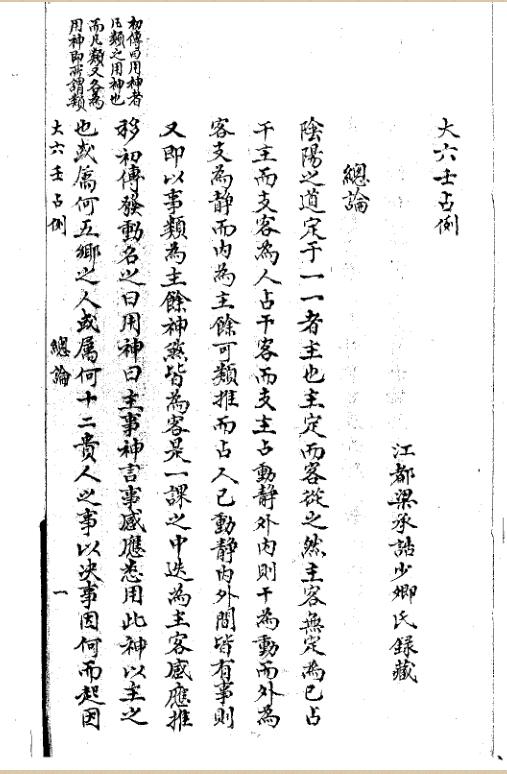 大六壬占例
江都梁承誥少卿氏錄藏
總論
陰陽之道定于一一者主也主定而客從之然主客無定為已占
干主而支客為人占干客而支主占動靜外內則干為動而外為
客支為靜而內為主餘可類推而占人已動靜內外間皆有事則
又即以事類為主餘神煞皆為客是一課之中迭為主客感應推
移初傳發動名之曰用神曰主事神言事感應悉用此神以主之
也或屬何五鄉之人或屬何十二貴人之事以決事因何而起因
初傳曰用神者
凡類之用神也
而凡類又各為
用神即所謂類
大六壬占例
總論
一